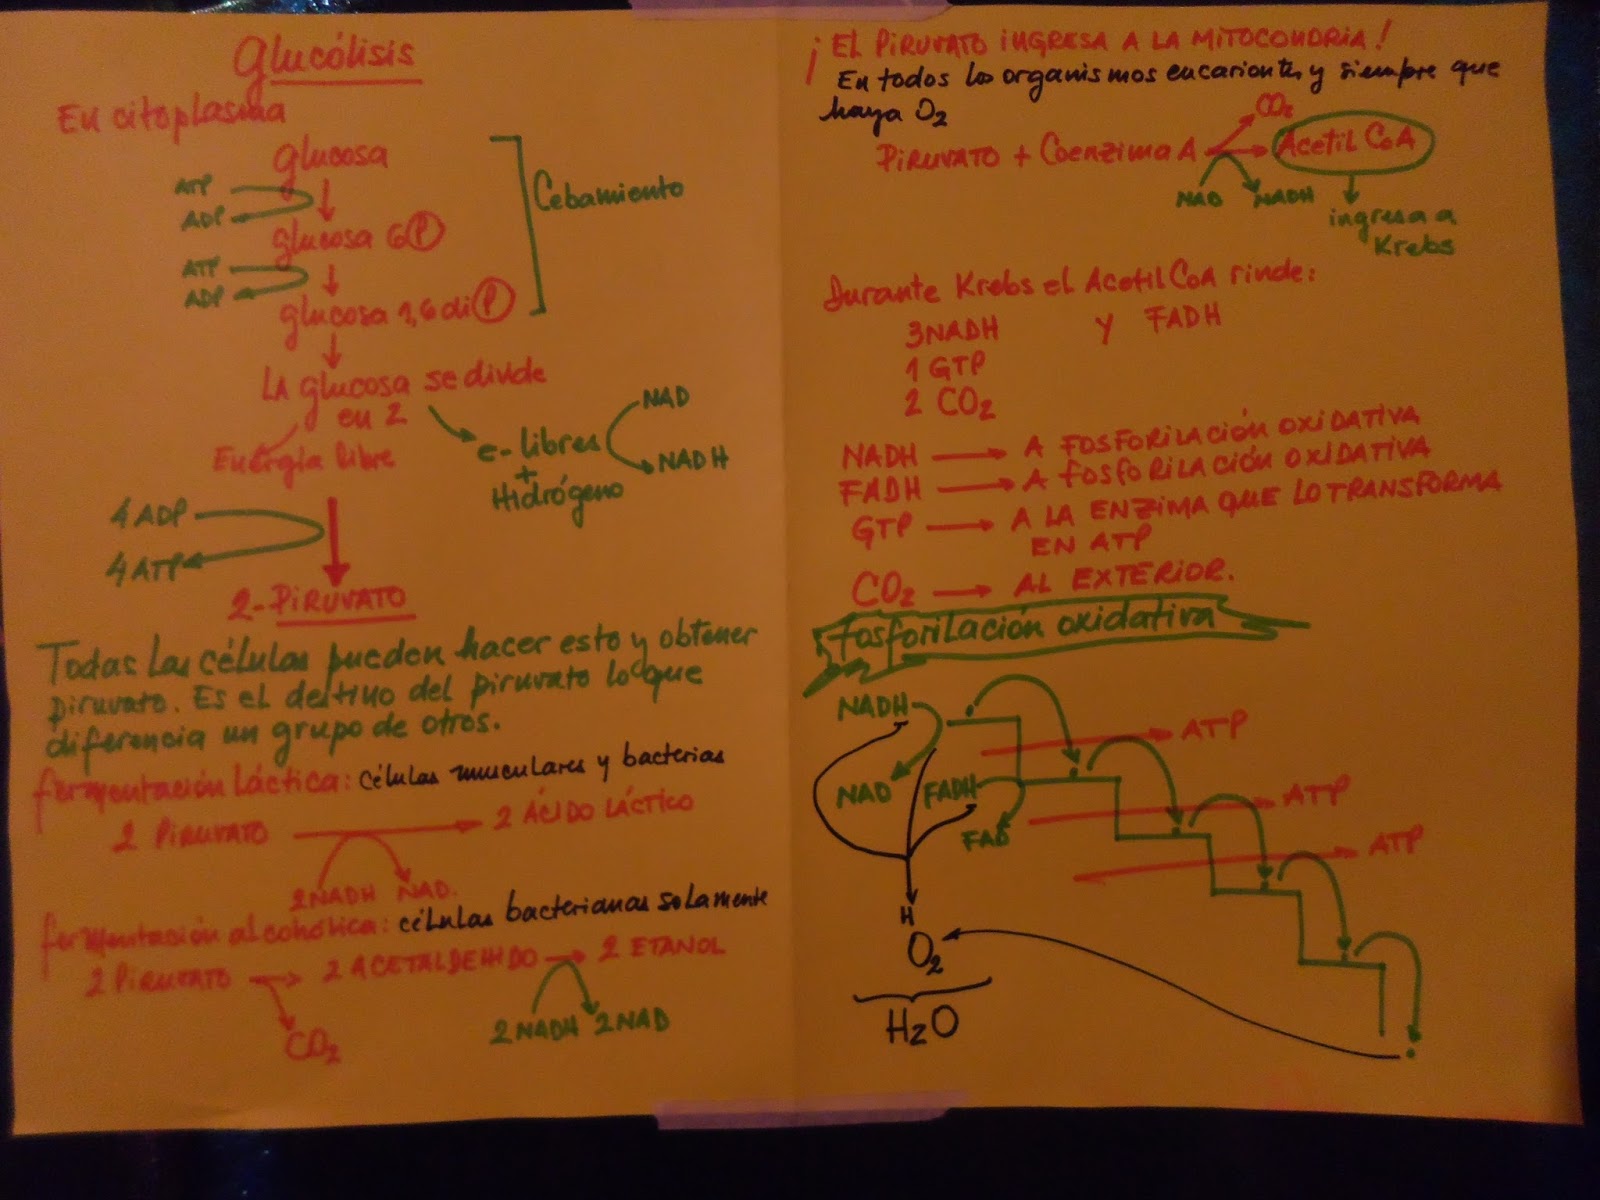 Glucólisis
En citoplasma
Glucosa
ATP
ADP
glucosa 6 P
ATP
ADP
glucosa 1,6 di P
Cebamiento
La glucosa se divide
en 2
Energía libre
e- libres
+
Hidrógeno
NAD
NADH
4 ADP
4 ATP
2- PIRUVATO
Todas las células pueden hacer esto y obtener
piruvato. Es el destino del piruvato lo que
diferencia un grupo de otros.
fermentación láctica: células musculares y bacterias
2 PIRUVATO 2 ÁCIDO LÁCTICO
2NADH NAD.
fermentación alcohólica: células bacterianas solamente
2 PIRUVATO 2 ACETALDEHIDO 2 ETANOL
CO2
2NADH 2NAD
¡EL PIRUVATO INGRESA A LA MITOCONDRIA!
En todos los organismos eucariontes y siempre que
haya O2
CO2
PIRUVATO + Coenzima A Acetil CoA
NAD NADH
ingresa a
Krebs
Durante Krebs el Acetil CoA rinde:
3NADH Y FADH
1 GTP
2 CO2
NADH A FOSFORILACIÓN OXIDATIVA
FADH A FOSFORILACIÓN OXIDATIVA
GTP A LA ENZIMA QUE LO TRANSFORMA
EN ATP
CO2 AL EXTERIOR.
fosforilación oxidativa
NADH
NAD
FADH
FAD
ATP
ATP
ATP
H
O2
H2O